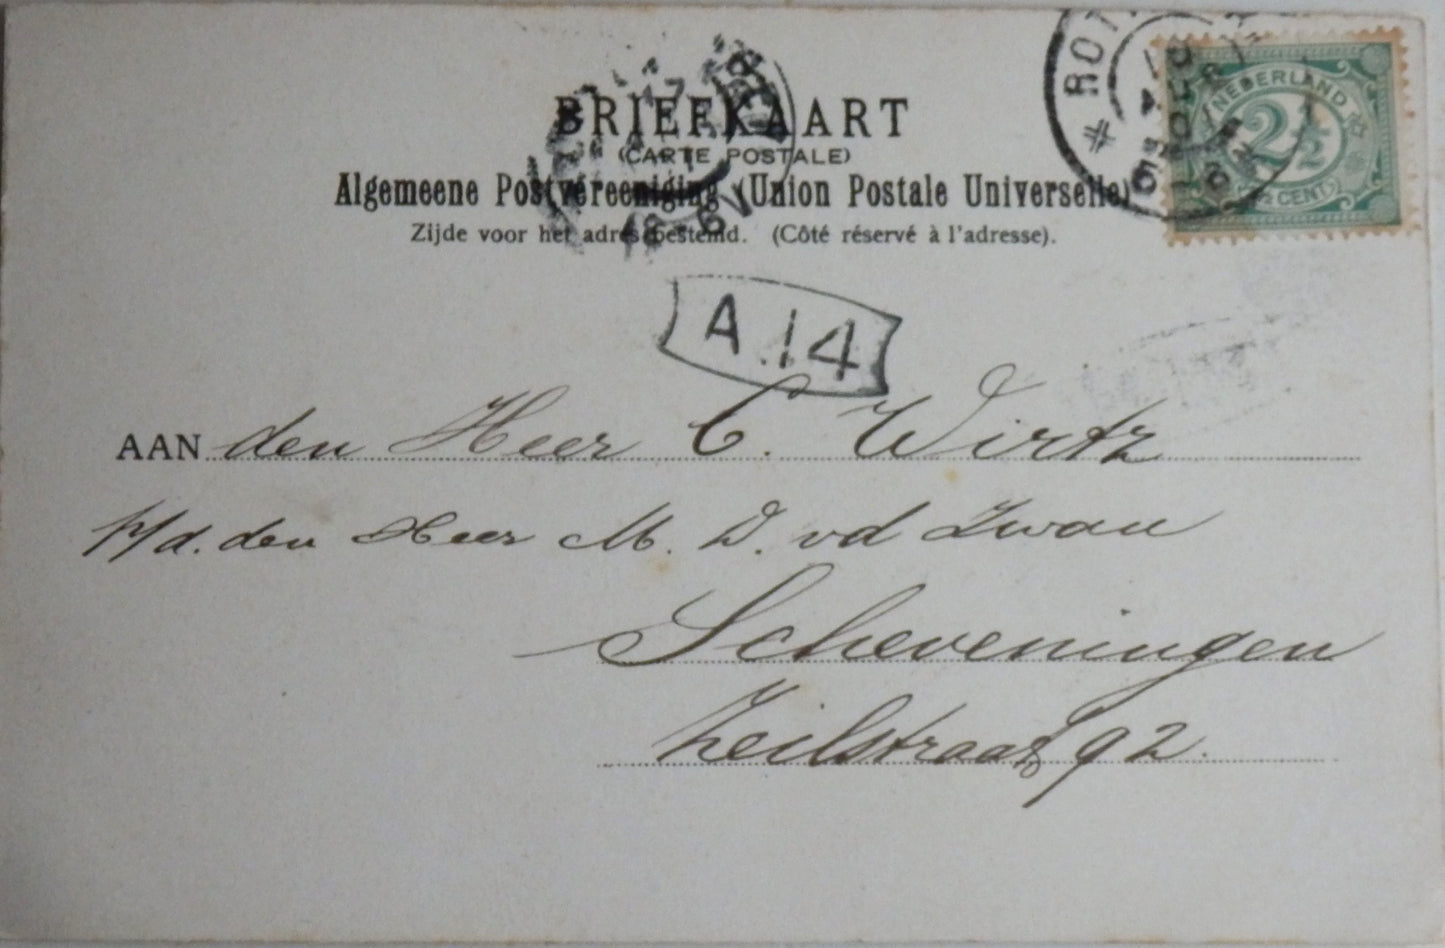 BRIEFKAART
(CARTE POSTALE)
Algemeene Postvereeniging (Union Postale Universelle)
Zijde voor het adres bestemd. (Côté réservé à l'adresse).
NEDERLAND
2½
2½ CENT
ROT
A.14
AAN den Heer C. Wirtz
p/a. den Heer M. D. vd Zwan
Scheveningen
Zeilstraat 92.